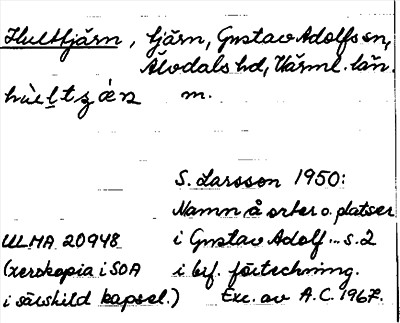 Hultfjärn, tjärn, Gustav Adolfs sn,
Älvdals hd, Värml. län.
m.
S. Larsson 1950:
Namn å orter o. platser
ULMA 20948 i Gustav Adolf ... s. 2
(xerokopia i SOA i bif. förteckning.
i särskild kapsel.) Exc. av A.C. 1967.